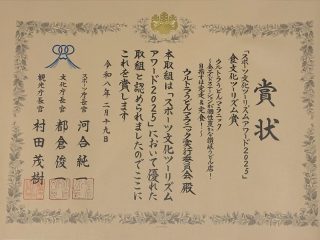 賞状
「スポーツ文化ツーリズムアワード2025」
食文化ツーリズム賞
ウルトラうどんマラニック
目指すは完走&完食!～
ウルトラうどんマラニック実行委員会 殿
本取組は「スポーツ文化ツーリズム
アワード2025」において優れた
取組と認められましたのでここに
これを賞します
令和八年二月十九日
スポーツ庁長官 河合純一
文化庁長官 都倉俊一
観光庁長官 村田茂樹